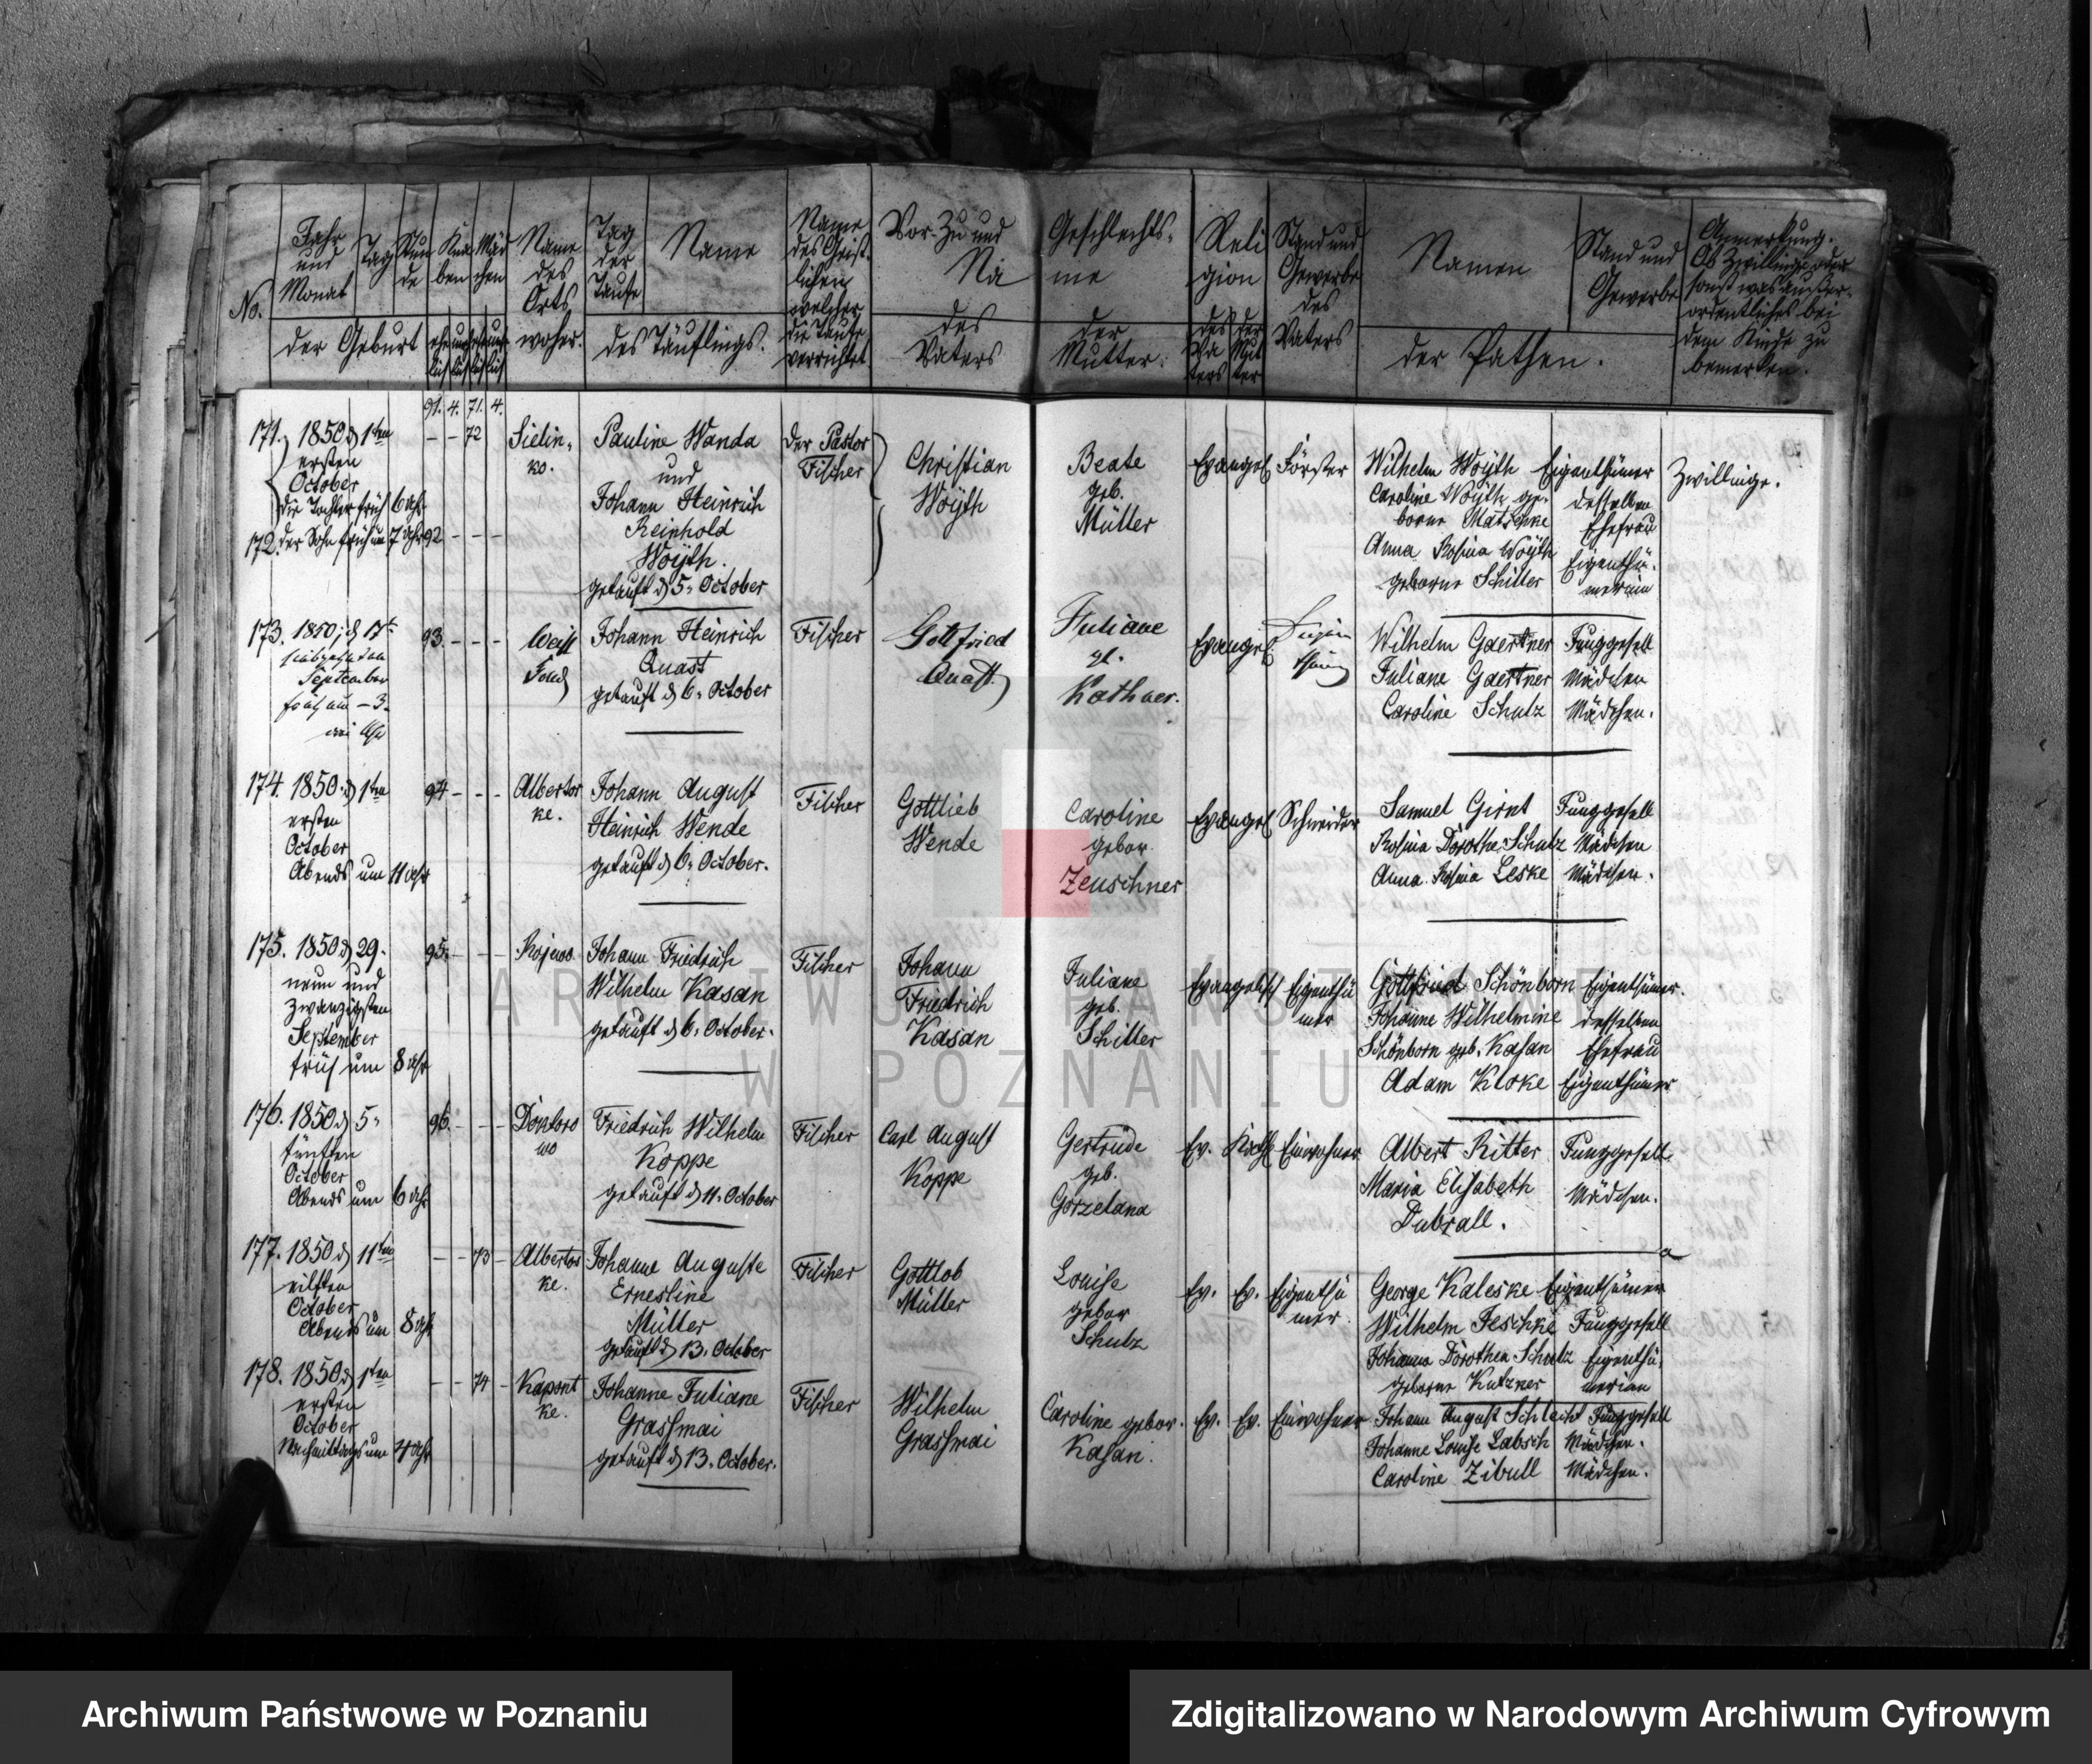 No.
Jahr und Monat
Tag
Stunde
Knaben
Mädchen
der Geburt
Name des Orts woher.
Tag der Taufe
Name
des Täuflings.
Name des Geistlichen welcher die Taufe verrichtet
Vor- Zu und Geschlechts-
Na me
des Vaters
der Mutter.
Religion
des Vaters
der Mutter
Stand und Gewerbe des Vaters
Namen
Stand und Gewerbe
der Pathen.
Anmerkung.
Ob Zwillinge oder
sonst was außer-
ordentliches bei
dem Kinde zu
bemerken.
91. 4. 71. 4.
171. 1850 d 1ten
ersten
October
die Tochter früh 6 Uhr
172. der Sohn früh um 7 Uhr
- - 72
92 - - -
Sielin-
ko.
Pauline Wanda
und
Johann Heinrich
Reinhold
Woÿth.
getauft d 5. October
der Pastor
Fischer
Christian
Woÿth
Beate
geb.
Müller
Evangel
Förster
Wilhelm Woÿth Eigenthümer
Caroline Woÿth ge- desselben
borne Matschke Ehefrau
Anna Rosina Woÿth Eigenthü-
geborne Schiller merinn
Zwillinge.
173. 1850; d 17t
siebzehnten
September
früh um - 3.
drei Uhr
93. - - -
Johann Heinrich
Quast
getauft d 6. October
Fischer
Gottfried
Quast
Juliane
Kathner.
Evangel
Wilhelm Gaertner Junggesell
Juliane Gaertner Mädchen
Caroline Schulz Mädchen.
174. 1850. d 1ten
ersten
October
Abends um 11 Uhr
94 - - -
Albertos
ke.
Johann August
Heinrich Wende
getauft d 6. October.
Fischer
Gottlieb
Wende
Caroline
gebor.
Zeuschner
Evangel
Schneider
Samuel Girnt Junggesell
Rosina Dorothe. Schulz Mädchen
Anna Rosina Leske Mädchen.
175. 1850 d 29.
neun und
zwanzigsten
September
früh um 8 Uhr
95. - - -
Kojewo
Johann Friedrich
Wilhelm Kasan
getauft d 6. October.
Fischer
Johann
Friedrich
Kasan
Juliane
geb.
Schiller
Evangelisch
Eigenthü
mer
Gottfried Schönborn Eigenthümer.
Johanne Wilhelmine desselben
Schönborn geb. Kasan Ehefrau
Adam Kloke Eigenthümer
176. 1850 d 5.
fünften
October
Abends um 6 Uhr
96. - - -
Friedrich Wilhelm
Koppe
getauft d 11. October
Fischer
Carl August
Koppe
Gertrude
geb.
Gorzelana
Ev. Kath
Einwohner
Albert Ritter Junggesell.
Maria Elisabeth Mädchen.
Dubrall.
177. 1850 d 11ten
eilften
October
Abends um 8 Uhr
- - 73 -
Albertos
ke.
Johanne Auguste
Ernestine
Müller
getauft d 13. October
Fischer
Gottlob
Müller
Louise
gebor
Schulz
Ev. Ev.
Eigenthü
mer
George Kaleske Eigenthümer
Wilhelm Jeschke Junggesell
Johanna Dorothea Schulz Eigenthü
geborne Kutzner merinn
178. 1850 d 1ten
ersten
October
Nachmittags um 4 Uhr
- - 74 -
Kapont
ke.
Johanne Juliane
Grassmai
getauft d 13. October.
Fischer
Wilhelm
Grassmai
Caroline gebor.
Kasan.
Ev. Ev.
Einwohner
Johann August Schlecht Junggesell
Johanne Louise Labsch Mädchen.
Caroline Zibull Mädchen.
ARCHIWUM PAŃSTWOWE
W POZNANIU
Archiwum Państwowe w Poznaniu
Zdigitalizowano w Narodowym Archiwum Cyfrowym